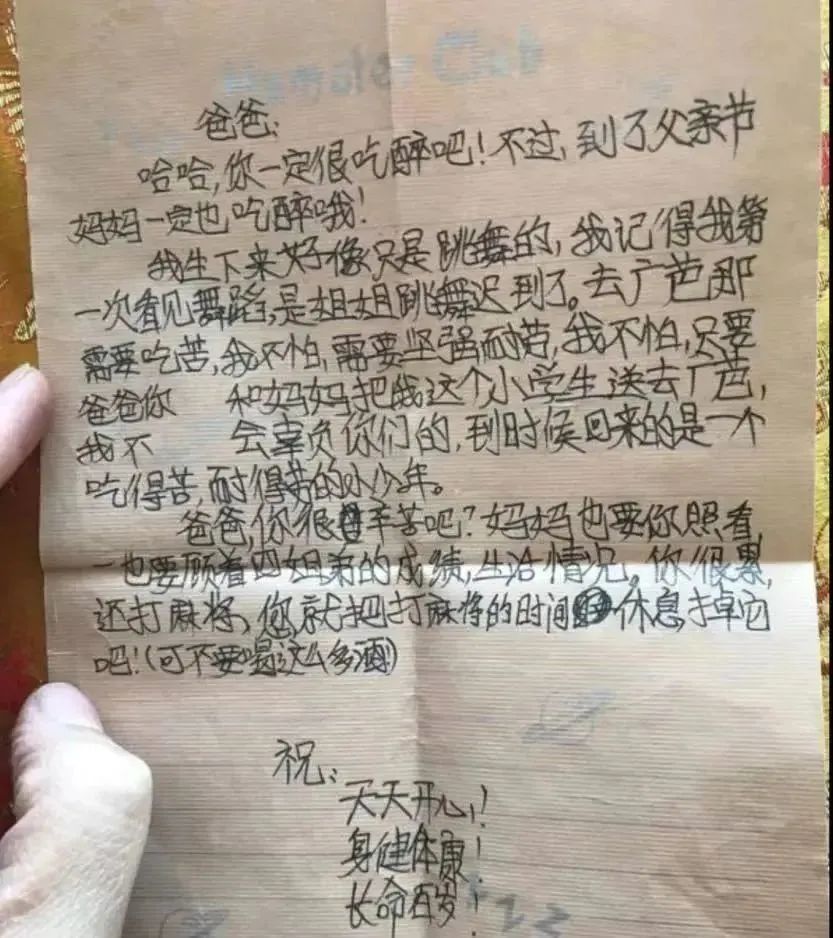 爸爸:
哈哈,你一定很吃醉吧!不过,到了父亲节
妈妈一定也吃醉哦!
我生下来好像只是跳舞的,我记得我第
一次看见舞蹈,是姐姐跳舞迟到了。去广芭那
需要吃苦,我不怕,需要坚强耐劳,我不怕,只要
爸爸你 和妈妈把我这个小学生送去广芭,
我不 会辜负你们的,到时候回来的是一个
吃得苦,耐得劳的小少年。
爸爸,你很辛苦吧?妈妈也要你照看,
也要顾着四姐弟的成绩,生活情况。你很累,
还打麻将,您就把打麻将的时间休息掉它
吧!(可不要喝这么多酒!)
祝:
天天开心!
身健体康!
长命百岁!